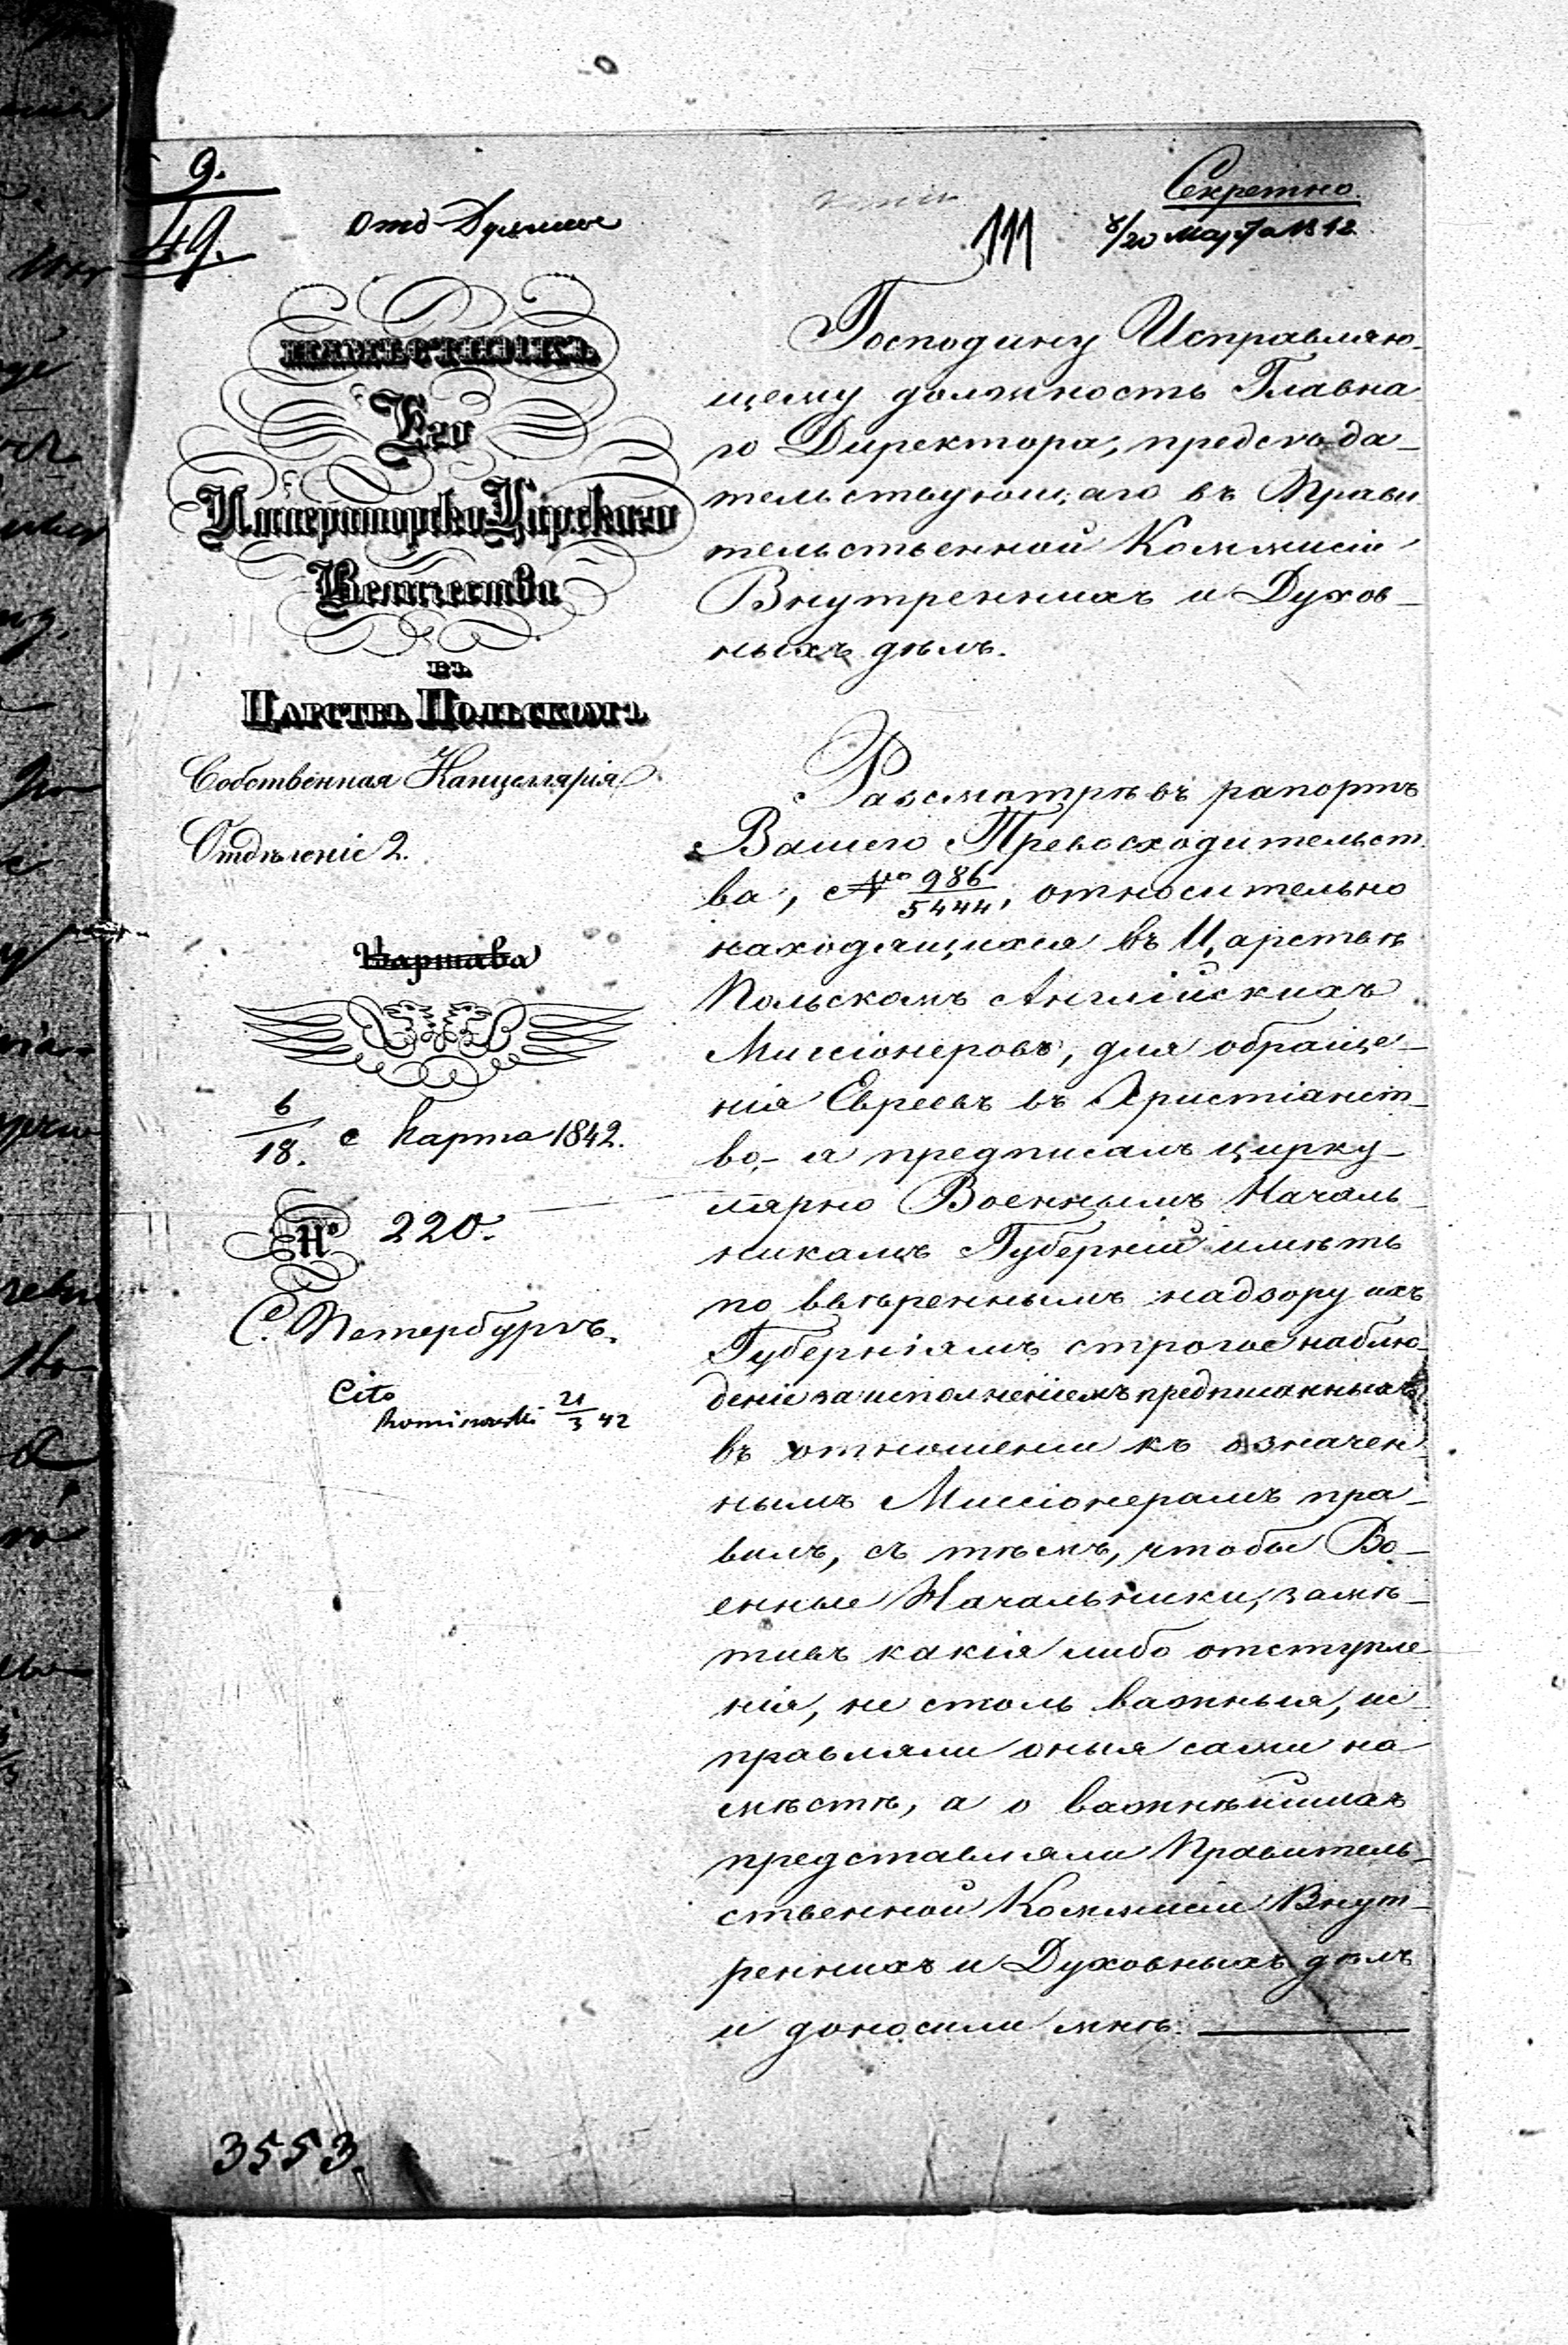 9.
49.
Секретно.
111
8/20 Марта 1842
НАМѢСТНИКЪ
Его
Императорско Царскаго
Величества
въ
Царствѣ Польскомъ
Собственная Канцелярія
Отдѣленіе 2.
Варшава
6/18. Марта 1842.
№ 220.
С. Петербургъ.
Cito
21/3 42
3553.
Господину Исправляю-
щему должность Главна
го Директора, предсѣда-
тельствующаго въ Прави
тельственной Коммисіи
Внутреннихъ и Духов-
ныхъ дѣлъ.
Разсмотрѣвъ рапортъ
Вашего Превосходительст
ва, № 986/5444, относительно
находящихся въ Царствѣ
Польскомъ Англійскихъ
Миссіонеровъ, для обраще-
нія Евреевъ въ Христіанст-
во,- я предписалъ цирку-
лярно Военнымъ Началь-
никамъ Губерній имѣть
по ввѣреннымъ надзору ихъ
Губерніямъ строгое наблю-
деніе за исполненіемъ предписанныхъ
въ отношеніи къ означен
нымъ Миссіонерамъ пра-
вилъ, съ тѣмъ, чтобы Во-
енные Начальники, замѣ-
тивъ какія либо отступле-
нія, не столь важныя, ис-
правляли оныя сами на
мѣстѣ, а о важнѣйшихъ
представляли Правитель-
ственной Коммисіи Внут-
реннихъ и Духовныхъ дѣлъ
и доносили мнѣ.